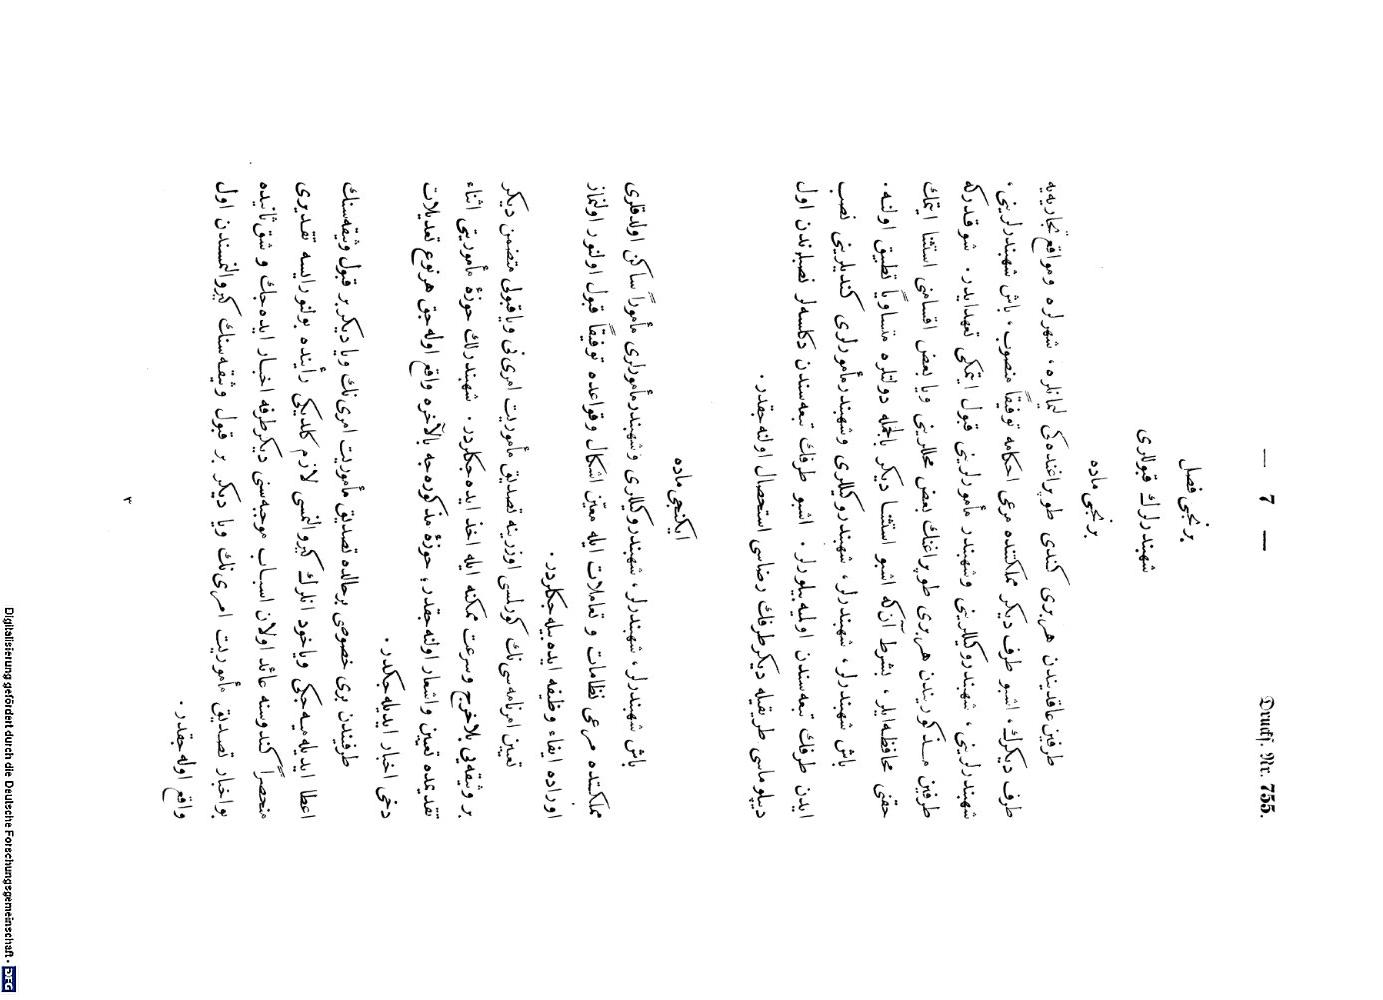 — 7 —
Druckſ. Nr. 755.
برنجی فصل
شهبندرلرك قبوللری
برنجی ماده
طرفین عاقدیندن هر بری كندی طوپراغنده كی لیمانلره، شهرلره ومواقع تجاریه‌یه
طرف دیگرك، اشبو طرف دیگر مملكتنده مرعی احكامه توفیقاً منصوب، باش شهبندرلرینی،
شهبندرلرینی، شهبندر وكیللرینی وشهبندر مأمورلرینی قبول ایتمكی تعهد ایدر. شو قدر كه
طرفین مذكوریندن هر بری طوپراغنك بعض محللرینی ویا بعض اقسامنی استثنا ایتمك
حقنی محافظه ایلر، بشرط آن كه اشبو استثنا دیگر بالجمله دولتلره متساویاً تطبیق اولنه.
باش شهبندرلر، شهبندرلر، شهبندر وكیللری وشهبندر مأمورلری كندیلرینی نصب
ایدن طرفك تبعه‌سندن اولمیه بیلورلر. اشبو طرفك تبعه‌سندن دكلسه‌لر نصبلرندن اول
دیپلوماسی طریقیله دیگر طرفك رضاسی استحصال اولنه‌جقدر.
ایكنجی ماده
باش شهبندرلر، شهبندرلر، شهبندر وكیللری وشهبندر مأمورلری مأموراً ساكن اولدقلری
مملكتده مرعی نظامات و تعاملات ایله معین اشكال وقواعده توفیقاً قبول اولنور اولنماز
اوراده ایفاء وظیفه ایده بیله‌جكلردر.
تعیین امرنامه‌سی‌نك كورلسی اوزرینه تصدیق مأموریت امری‌نی ویا قبولی متضمن دیگر
بر وثیقه‌یی بلاخرج وسرعت ممكنه ایله اخذ ایده‌جكلردر. شهبندرلك حوزهٔ مأموریتی اثناء
تقدیمده تعیین واشعار اولنه‌جقدر؛ حوزهٔ مذكوره‌جه بالآخره واقع اوله‌جق هر نوع تعدیلات
دخی اخبار ایدیله‌جكدر.
طرفیندن بری خصوصی بر حالده تصدیق مأموریت امری‌نك ویا دیگر بر قبول وثیقه‌سنك
اعطا ایدیله‌میه‌جكی ویاخود انلرك كیرو النمسی لازم كلدیكی رأینده بولنور ایسه تقدیری
منحصراً كندوسنه عائد اولان اسباب موجبه‌سنی دیگر طرفه اخبار ایده‌جك و شق ثانیده
بو اخبار تصدیق مأموریت امری‌نك ویا دیگر بر قبول وثیقه‌سنك كیرو النمسندن اول
واقع اوله‌جقدر.
٣
Digitalisierung gefördert durch die Deutsche Forschungsgemeinschaft - DFG